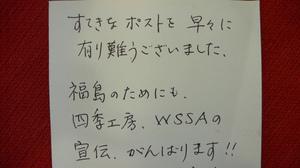 すてきな ポストを 早々に
有り難うございました。
福島のためにも、
四季工房、WSSAの
宣伝、がんばります!!